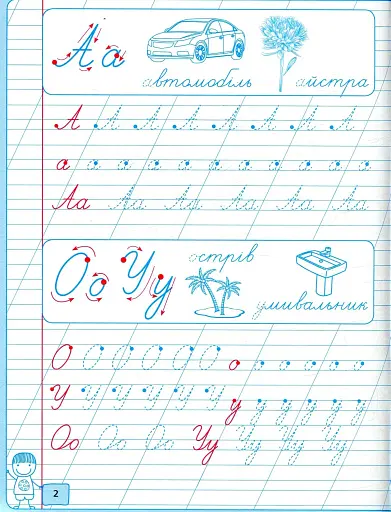 Аа
автомобіль айстра
А А А А А А А А
а а а а а а а а а а
Аа Аа Аа Аа Аа Аа
Оо Уу
острів
умивальник
О О О О О О о о о о о
У У У У У У у у у у у
Оо Оо Оо Уу Уу Уу Уу
2